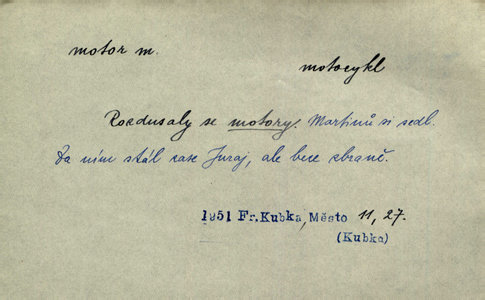 motor m.
motocykl
Rozdusaly se motory. Martinů si sedl.
Za ním stál zase Juraj, ale beze zbraně.
1951 Fr. Kubka, Město 11, 27.
(Kubka)